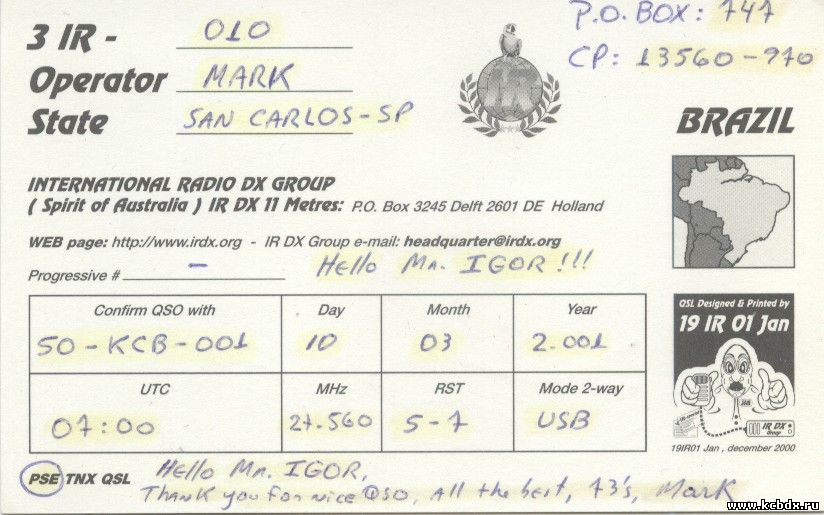 3 IR - 010
P.O. BOX: 747
CP: 13560-970
Operator MARK
State SAN CARLOS-SP
IR
BRAZIL
INTERNATIONAL RADIO DX GROUP
( Spirit of Australia ) IR DX 11 Metres: P.O. Box 3245 Delft 2601 DE Holland
WEB page: http://www.irdx.org - IR DX Group e-mail: headquarter@irdx.org
Progressive # - HELLO MR. IGOR!!!
Confirm QSO with Day Month Year
50-KCB-001 10 03 2.001
UTC MHz RST Mode 2-way
07:00 27.560 5-7 USB
QSL Designed & Printed by
19 IR 01 Jan
IR DX
Group
19IR01 Jan , december 2000
PSE TNX QSL HELLO MR. IGOR,
THANK you FOR NICE QSO, All the best, 73's, Mark
www.kcbdx.ru